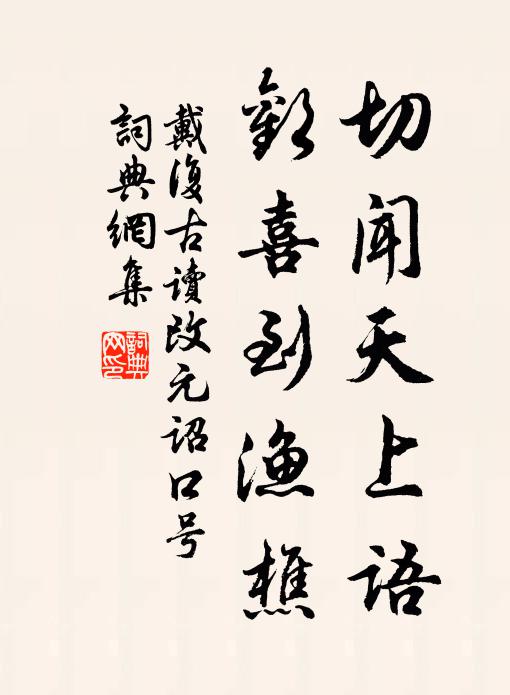 切闻天上语
歡喜到渔樵
戴復古讀改元诏口号
詞典網集
詞典網印